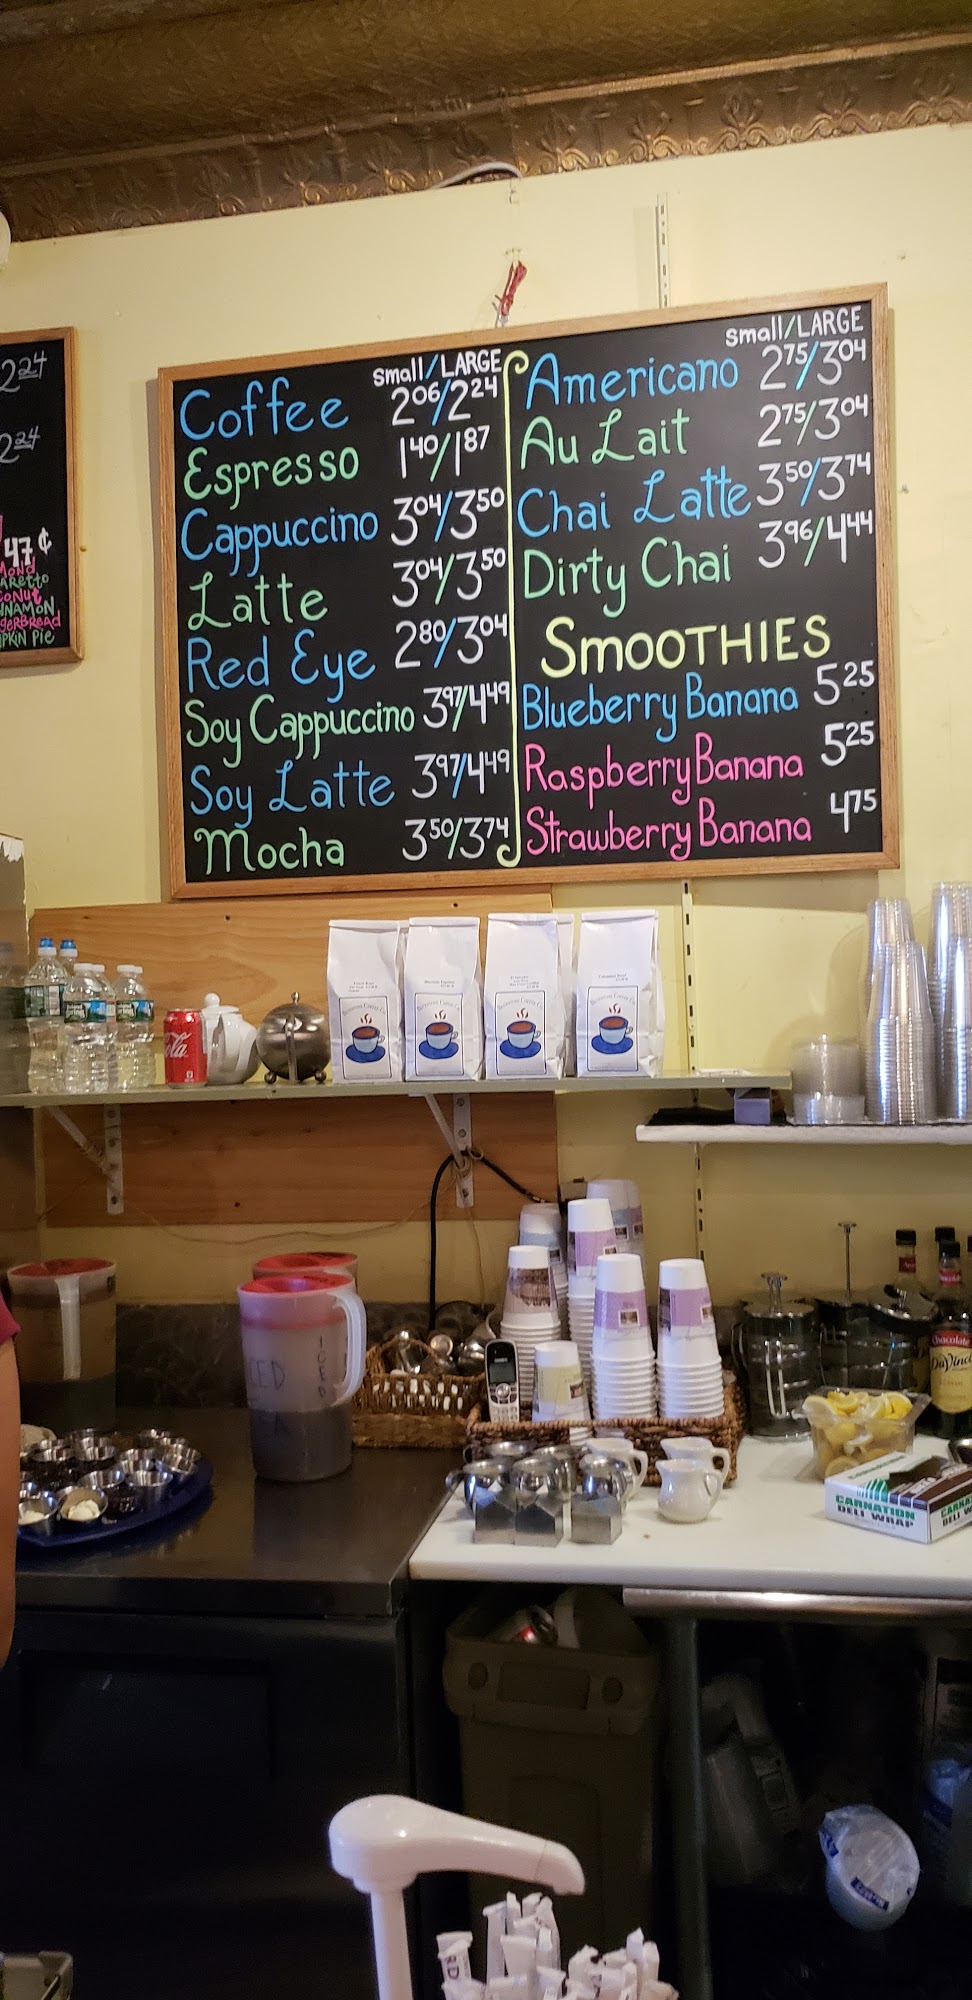 2 24
2 24
47¢
CONUT
NNAMON
GERBREAD
PKIN PIE
small/LARGE
Coffee 2 06/2 24
Espresso 1 40/1 87
Cappuccino 3 04/3 50
Latte 3 04/3 50
Red Eye 2 80/3 04
Soy Cappuccino 3 97/4 49
Soy Latte 3 97/4 49
Mocha 3 50/3 74
small/LARGE
Americano 2 75/3 04
Au Lait 2 75/3 04
Chai Latte 3 50/3 74
Dirty Chai 3 96/4 44
SMOOTHIES
Blueberry Banana 5 25
Raspberry Banana 5 25
Strawberry Banana 4 75
CARNATION
DELI WRAP
Chocolate
DaVinci